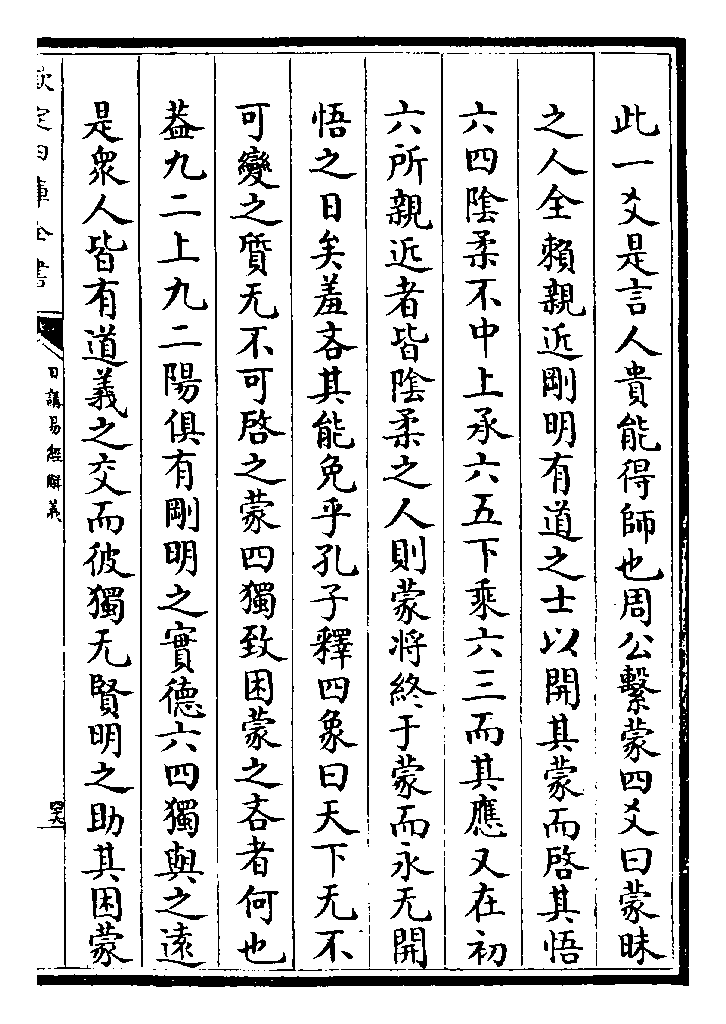 此一爻是言人貴能得師也周公繫蒙四爻曰蒙昧
之人全賴親近剛明有道之士以開其蒙而啓其悟
六四陰柔不中上承六五下乘六三而其應又在初
六所親近者皆陰柔之人則蒙將終于蒙而永无開
悟之日矣羞吝其能免乎孔子釋四象曰天下无不
可變之質无不可啓之蒙四獨致困蒙之吝者何也
葢九二上九二陽俱有剛明之實德六四獨與之遠
是衆人皆有道義之交而彼獨无賢明之助其困蒙
欽定四庫全書
日講易經解義
四六